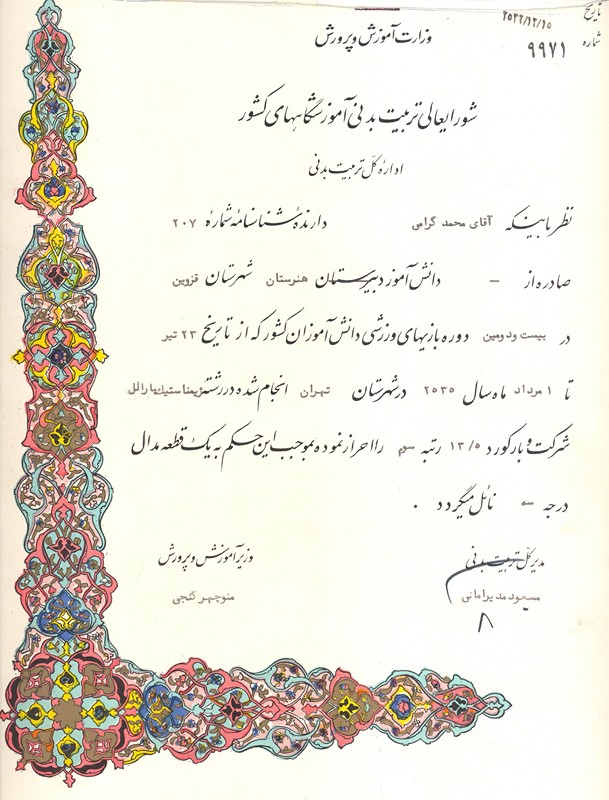 تاریخ ۲۵۳۶/۱۲/۱۵
شماره ۹۹۷۱
وزارت آموزش و پرورش
شورایعالی تربیت بدنی آموزشگاههای کشور
اداره کل تربیت بدنی
نظر باینکه آقای محمد گرامی دارنده شناسنامه شماره ۲۰۷
صادره از — دانش آموز دبیرستان هنرستان شهرستان قزوین
در بیست و دومین دوره بازیهای ورزشی دانش آموزان کشور که از تاریخ ۲۳ تیر
تا ۱ مرداد ماه سال ۲۵۳۵ در شهرستان تهران انجام شده در رشته ژیمناستیک پارالل
شرکت و با رکورد ۱۳/۵ رتبه سوم را احراز نموده بموجب این حکم به یک قطعه مدال
درجه سه نائل میگردد .
مدیر کل تربیت بدنی وزیر آموزش و پرورش
مسعود مدیرامانی منوچهر گنجی